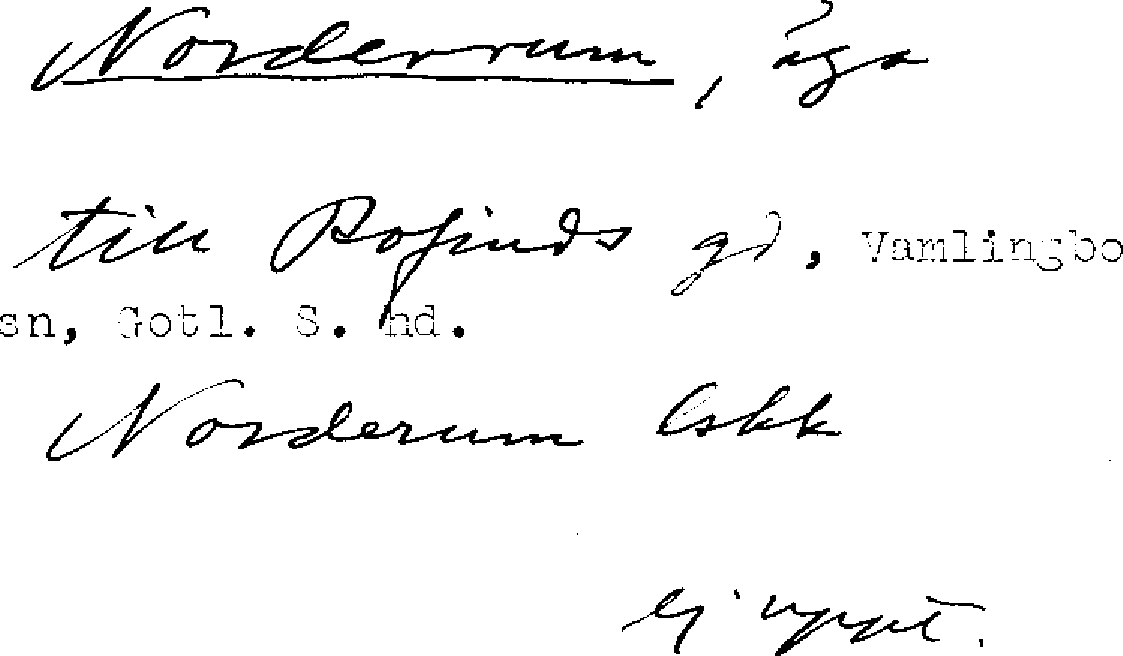 Norderrum, äga
till Rofinds gd, Vamlingbo
sn, Gotl. S. hd.
Norderum lskk
ej uppt.